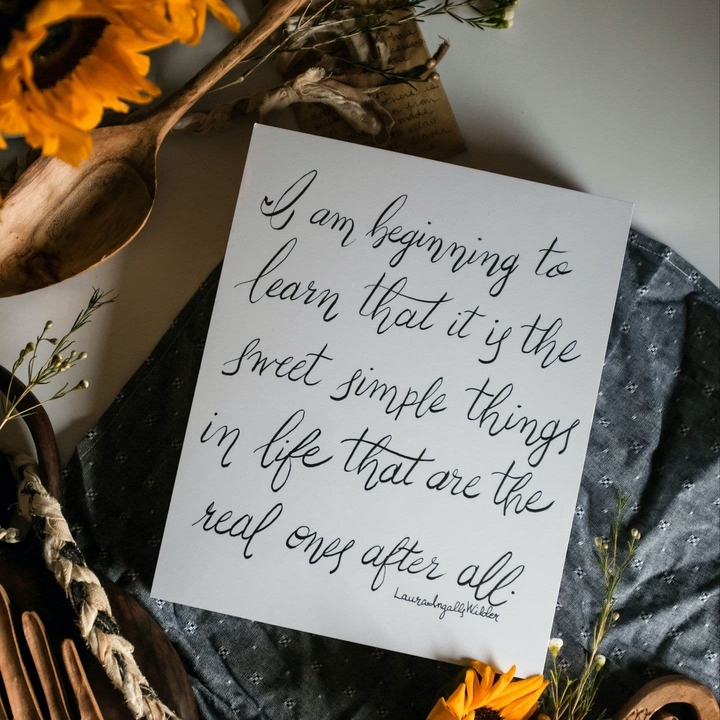 I am beginning to
learn that it is the
sweet simple things
in life that are the
real ones after all.
Laura Ingalls Wilder